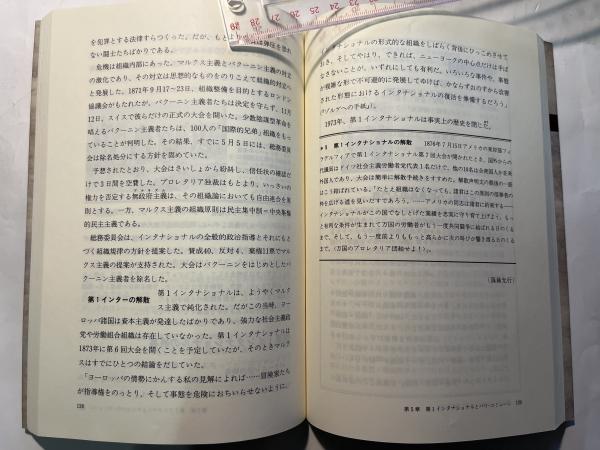 を犯罪とする法律すらつくった。だが、もとより
ない闘士たちばかりである。
危機は組織内部にあった。マルクス主義とバクーニン主義の対立
の激化であり、その対立は思想的なものをのりこえて組織的対立へ
と発展した。1871年9月17〜23日、組織整備を目的とするロンドン
協議会がもたれたが、バクーニン主義者たちは決定を守らず、11月
12日、スイスで彼らだけの正式の大会を開いた。少数陰謀型革命を
唱えるバクーニン主義者たちは、100人の「国際的兄弟」組織をもっ
ていることが判明した。その結果、すでに5月5日には、総務委員
会は除名処分にする方針を固めていた。
予想されたとおり、大会はさいしょから紛糾し、信任状の確認だ
けで3日間を空費した。プロレタリア独裁はもとより、いっさいの
権力を否定する無政府主義は、その組織論においても自由連合を原
則とする。一方、マルクス主義の組織原則は民主集中制＝中央集権
的民主主義である。
総務委員会は、インタナショナルの全般的政治指導とそれにもと
づく組織規律の方針を提案した。賛成40、反対4、棄権11票でマル
クス主義の提案が支持された。大会はバクーニンをはじめとしたバ
クーニン主義者を除名した。
第1インターの解散
第1インタナショナルは、ようやくマルク
ス主義で純化された。だがこの当時、ヨー
ロッパ諸国は資本主義が発達したばかりであり、強力な社会主義政
党や労働組合組織は存在していなかった。第1インタナショナルは
1873年に第6回大会を開くことを予定していたが、そのときマルク
スはすでにひとつの結論をだしていた。
「ヨーロッパの情勢にかんする私の見解によれば……冒険家たち
が指導権をのっとり、そして事態を危険におちいらせないように、
138
インタナショナルの形式的な組織をしばらく背後にひっこめさせて
おき、そしてやはり、できれば、ニューヨークの中心点だけは手ば
なさないことが、いずれにしても有利だ。いろいろな事件や、事態
が複雑な形で不可避的に発展してゆけば、かならずおのずから改善
された形態におけるインタナショナルの復活を準備するだろう」
(『ゾルゲへの手紙』)。
1973年、第1インタナショナルは事実上の歴史を閉じた。
第1インタナショナルの解散
1876年7月15日アメリカの東部フィ
ラデルフィアで第1インタナショナル第7回大会が開かれたとき、国外からの
代議員はドイツ社会主義労働者党代表1名だけで、
(万国のプロレタリア団結せよ！)。
第5章 第1インタナショナルとパリ・コミューン
139